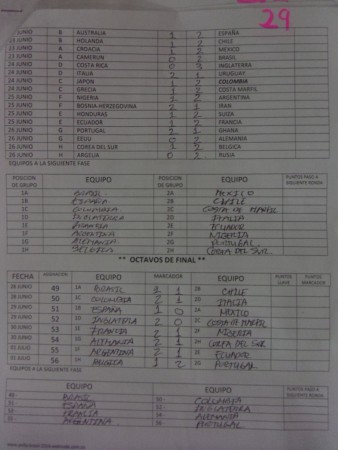 29
23 JUNIO B AUSTRALIA 1 2 ESPAÑA
23 JUNIO B HOLANDA CHILE
23 JUNIO A CROACIA 1 2 MEXICO
23 JUNIO A CAMERUN 0 2 BRASIL
24 JUNIO D COSTA RICA 0 3 INGLATERRA
24 JUNIO D ITALIA 2 1 URUGUAY
24 JUNIO C JAPON 1 2 COLOMBIA
24 JUNIO C GRECIA 1 2 COSTA MARFIL
25 JUNIO F NIGERIA ARGENTINA
25 JUNIO F BOSNIA-HERZEGOVINA 2 1 IRAN
25 JUNIO E HONDURAS 1 2 SUIZA
25 JUNIO E ECUADOR 1 2 FRANCIA
26 JUNIO G PORTUGAL 2 1 GHANA
26 JUNIO G EEUU 0 2 ALEMANIA
26 JUNIO H COREA DEL SUR 1 2 BELGICA
26 JUNIO H ARGELIA 0 2 RUSIA
EQUIPOS A LA SIGUIENTE FASE
POSICION DE GRUPO EQUIPO POSICION DE GRUPO EQUIPO PUNTOS PASO A SIGUIENTE RONDA
1A BRASIL 2A MEXICO
1B ESPAÑA 2B CHILE
1C COLOMBIA 2C COSTA DE MARFIL
1D INGLATERRA 2D ITALIA
1E FRANCIA 2E ECUADOR
1F ARGENTINA 2F NIGERIA
1G ALEMANIA 2G PORTUGAL
1H BELGICA 2H COREA DEL SUR
** OCTAVOS DE FINAL **
FECHA EQUIPO MARCADOR EQUIPO PUNTOS PUNTOS
28 JUNIO 49 1A BRASIL 2 1 2B CHILE
28 JUNIO 50 1C COLOMBIA 2 1 2D ITALIA
29 JUNIO 51 1B ESPAÑA 1 0 2A MEXICO
29 JUNIO 52 1D INGLATERRA 2 0 2C COSTA DE MARFIL
30 JUNIO 53 1E FRANCIA 2F NIGERIA
30 JUNIO 54 1G ALEMANIA 2 1 2H COREA DEL SUR
01 JULIO 55 1F ARGENTINA 2 1 2E ECUADOR
01 JULIO 56 1H BELGICA 1 2 2G PORTUGAL
EQUIPOS A LA SIGUIENTE FASE
EQUIPO EQUIPO PUNTOS PASO A SIGUIENTE RONDA
49 BRASIL 50 COLOMBIA
51 ESPAÑA 52 INGLATERRA
53 FRANCIA 54 ALEMANIA
55 ARGENTINA 56 PORTUGAL